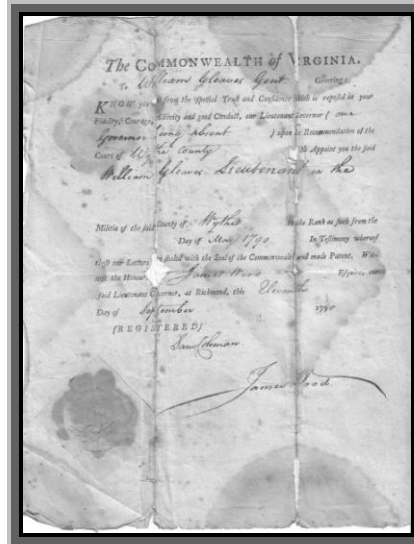 The COMMONWEALTH of VIRGINIA.
To William Gleaves Gent. Greeting:
KNOW you that from the special Trust and Confidence which is reposed in your
Fidelity, Courage, Activity and good Conduct, our Lieutenant Governor ( our
Governor being absent ) upon the Recommendation of the
Court of Wythe County Appoint you the said
William Gleaves Lieutenant in the
Militia of the said County of Wythe to Rank as such from the
Day of May 1790 In Testimony whereof
these our Letters are sealed with the Seal of the Commonwealth and made Patent. Wit-
ness the Honour James Wood Esquire our
said Lieutenant Governor, at Richmond, this Eleventh
Day of September 1790
(REGISTERED)
Sam Coleman
James Wood